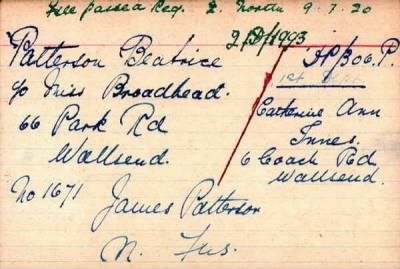 File passed Reg. Z. North 9.7.20
2/D/1993
Patterson Beatrice
D.P/3/06.P.
c/o Miss Broadhead.
1st Sept.
66 Park Rd
Wallsend.
Catherine Ann
Innes.
6 Coach Rd
Wallsend.
No 1671 James Patterson
N. Fus.